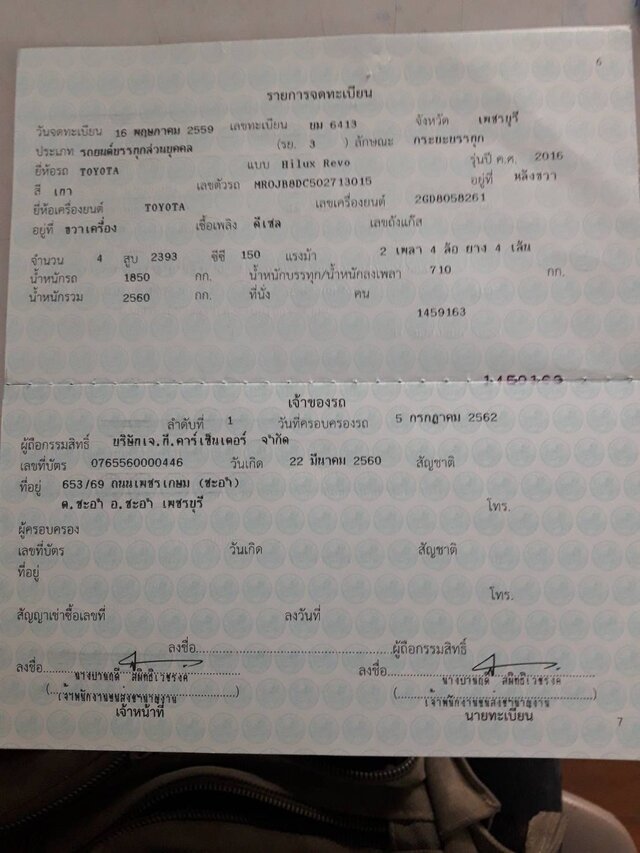 6
รายการจดทะเบียน
วันจดทะเบียน 16 พฤษภาคม 2559 เลขทะเบียน ยม 6413 จังหวัด เพชรบุรี
ประเภท รถยนต์บรรทุกส่วนบุคคล (รย. 3 ) ลักษณะ กระบะบรรทุก
ยี่ห้อรถ TOYOTA แบบ Hilux Revo รุ่นปี ค.ศ. 2016
สี เทา เลขตัวรถ MR0JB8DC502713015 อยู่ที่ หลังขวา
ยี่ห้อเครื่องยนต์ TOYOTA เลขเครื่องยนต์ 2GD8058261
อยู่ที่ ขวาเครื่อง เชื้อเพลิง ดีเซล เลขถังแก๊ส
จำนวน 4 สูบ 2393 ซีซี 150 แรงม้า 2 เพลา 4 ล้อ ยาง 4 เส้น
น้ำหนักรถ 1850 กก. น้ำหนักบรรทุก/น้ำหนักลงเพลา 710 กก.
น้ำหนักรวม 2560 กก. ที่นั่ง คน
1459163
1459163
เจ้าของรถ
ลำดับที่ 1 วันที่ครอบครองรถ 5 กรกฎาคม 2562
ผู้ถือกรรมสิทธิ์ บริษัทเจ.กี.คาร์เซ็นเตอร์ จำกัด
เลขที่บัตร 0765560000446 วันเกิด 22 มีนาคม 2560 สัญชาติ
ที่อยู่ 653/69 ถนนเพชรเกษม (ชะอำ)
ต.ชะอำ อ.ชะอำ เพชรบุรี
โทร.
ผู้ครอบครอง
เลขที่บัตร วันเกิด สัญชาติ
ที่อยู่
โทร.
สัญญาเช่าซื้อเลขที่ ลงวันที่
ลงชื่อ ผู้ถือกรรมสิทธิ์
ลงชื่อ ลงชื่อ
เจ้าพนักงานขนส่งชำนาญงาน เจ้าพนักงานขนส่งชำนาญงาน
เจ้าหน้าที่ นายทะเบียน
7